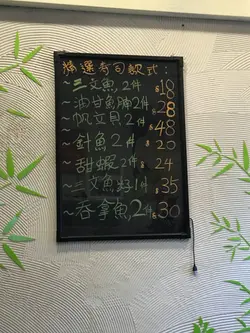 精選壽司款式：
~三文魚2件 $18
~油甘魚腩2件 $28
~帆立貝2件 $48
~針魚2件 $20
~甜蝦2件 $24
~三文魚籽1件 $35
~吞拿魚2件 $30